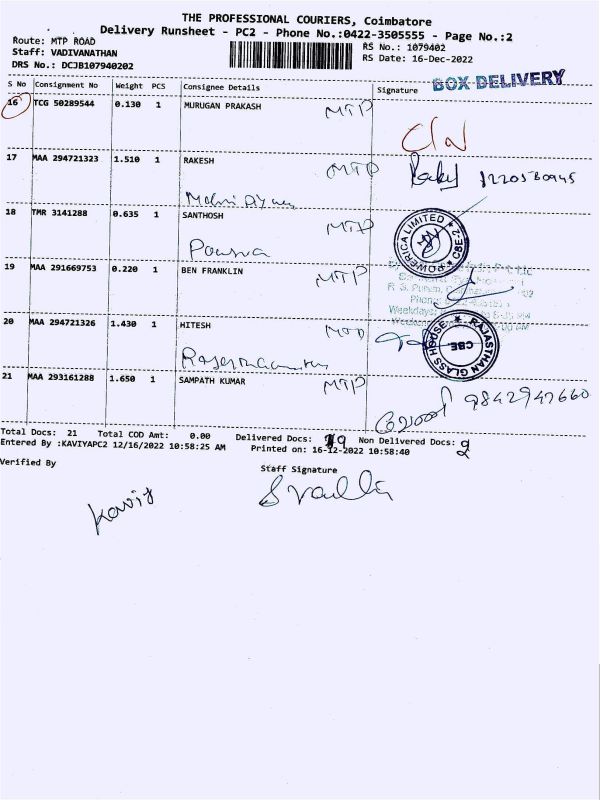 THE PROFESSIONAL COURIERS, Coimbatore
Delivery Runsheet - PC2 - Phone No.:0422-3505555 - Page No.:2
Route: MTP ROAD
Staff: VADIVANATHAN
DRS No.: DCJB107940202
RS No.: 1079402
RS Date: 16-Dec-2022
BOX DELIVERY
S No Consignment No Weight PCS Consignee Details Signature
16 TCG 50289544 0.130 1 MURUGAN PRAKASH MTP
17 MAA 294721323 1.510 1 RAKESH MTP
18 TMR 3141288 0.635 1 SANTHOSH MTP
POWERICA LIMITED CBE-2
19 MAA 291669753 0.220 1 BEN FRANKLIN MTP
20 MAA 294721326 1.430 1 HITESH
RAJASTHAN GLASS HOUSE CBE
21 MAA 293161288 1.650 1 SAMPATH KUMAR MTP
9842947660
Total Docs: 21 Total COD Amt: 0.00 Delivered Docs: 19 Non Delivered Docs: 2
Entered By :KAVIYAPC2 12/16/2022 10:58:25 AM Printed on: 16-12-2022 10:58:40
Verified By Staff Signature